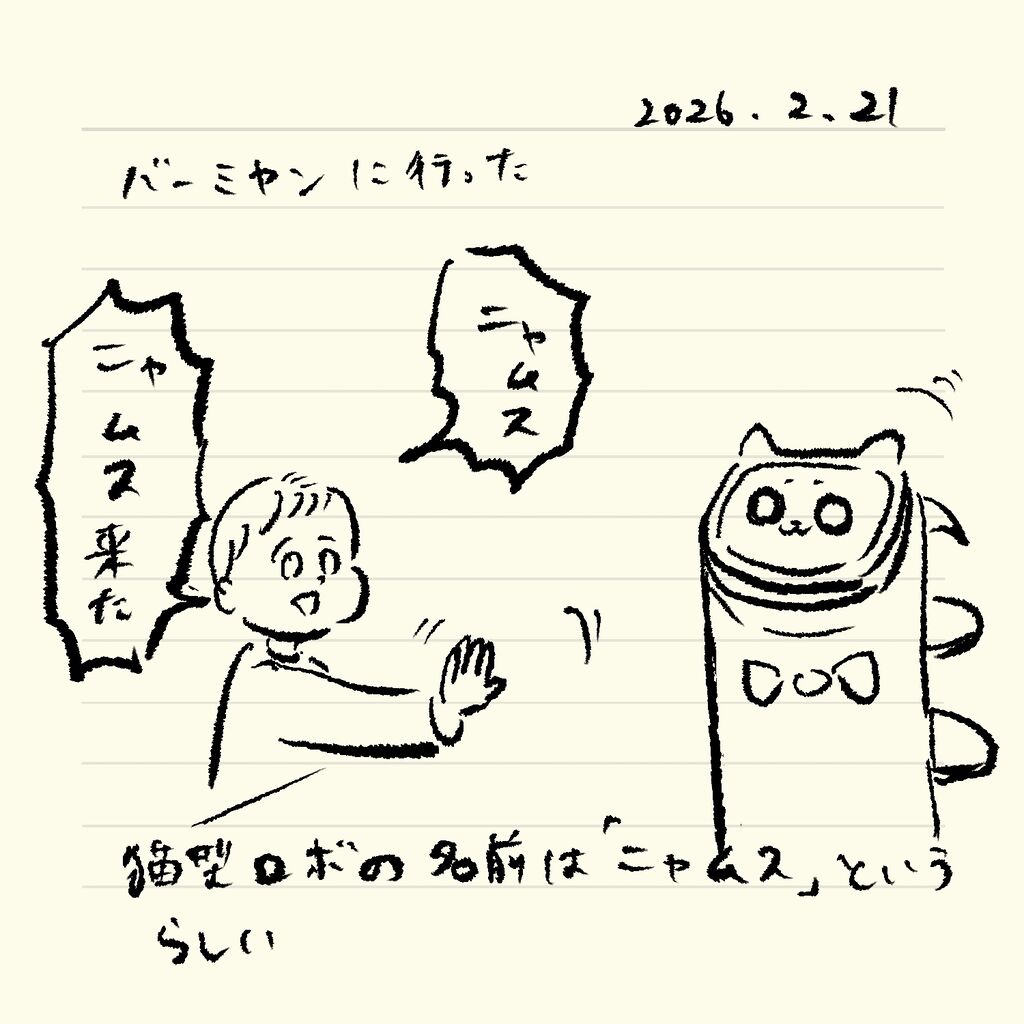 2026.2.21
バーミヤンに行った
ニャムス
ニャムス来た
猫型ロボの名前は「ニャムス」という
らしい